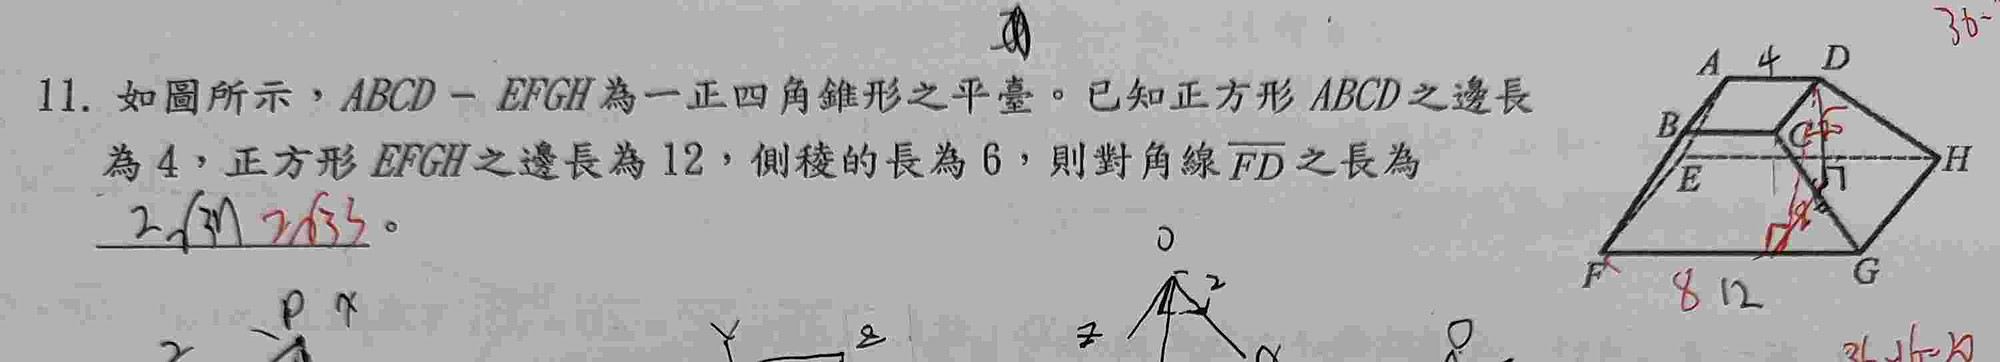 36-
11. 如圖所示，ABCD－EFGH為一正四角錐形之平臺。已知正方形ABCD之邊長
為4，正方形EFGH之邊長為12，側稜的長為6，則對角線FD之長為
2√33。
A 4 D
B C
E H
F G
8 12
O
2
P x
Y 2
O